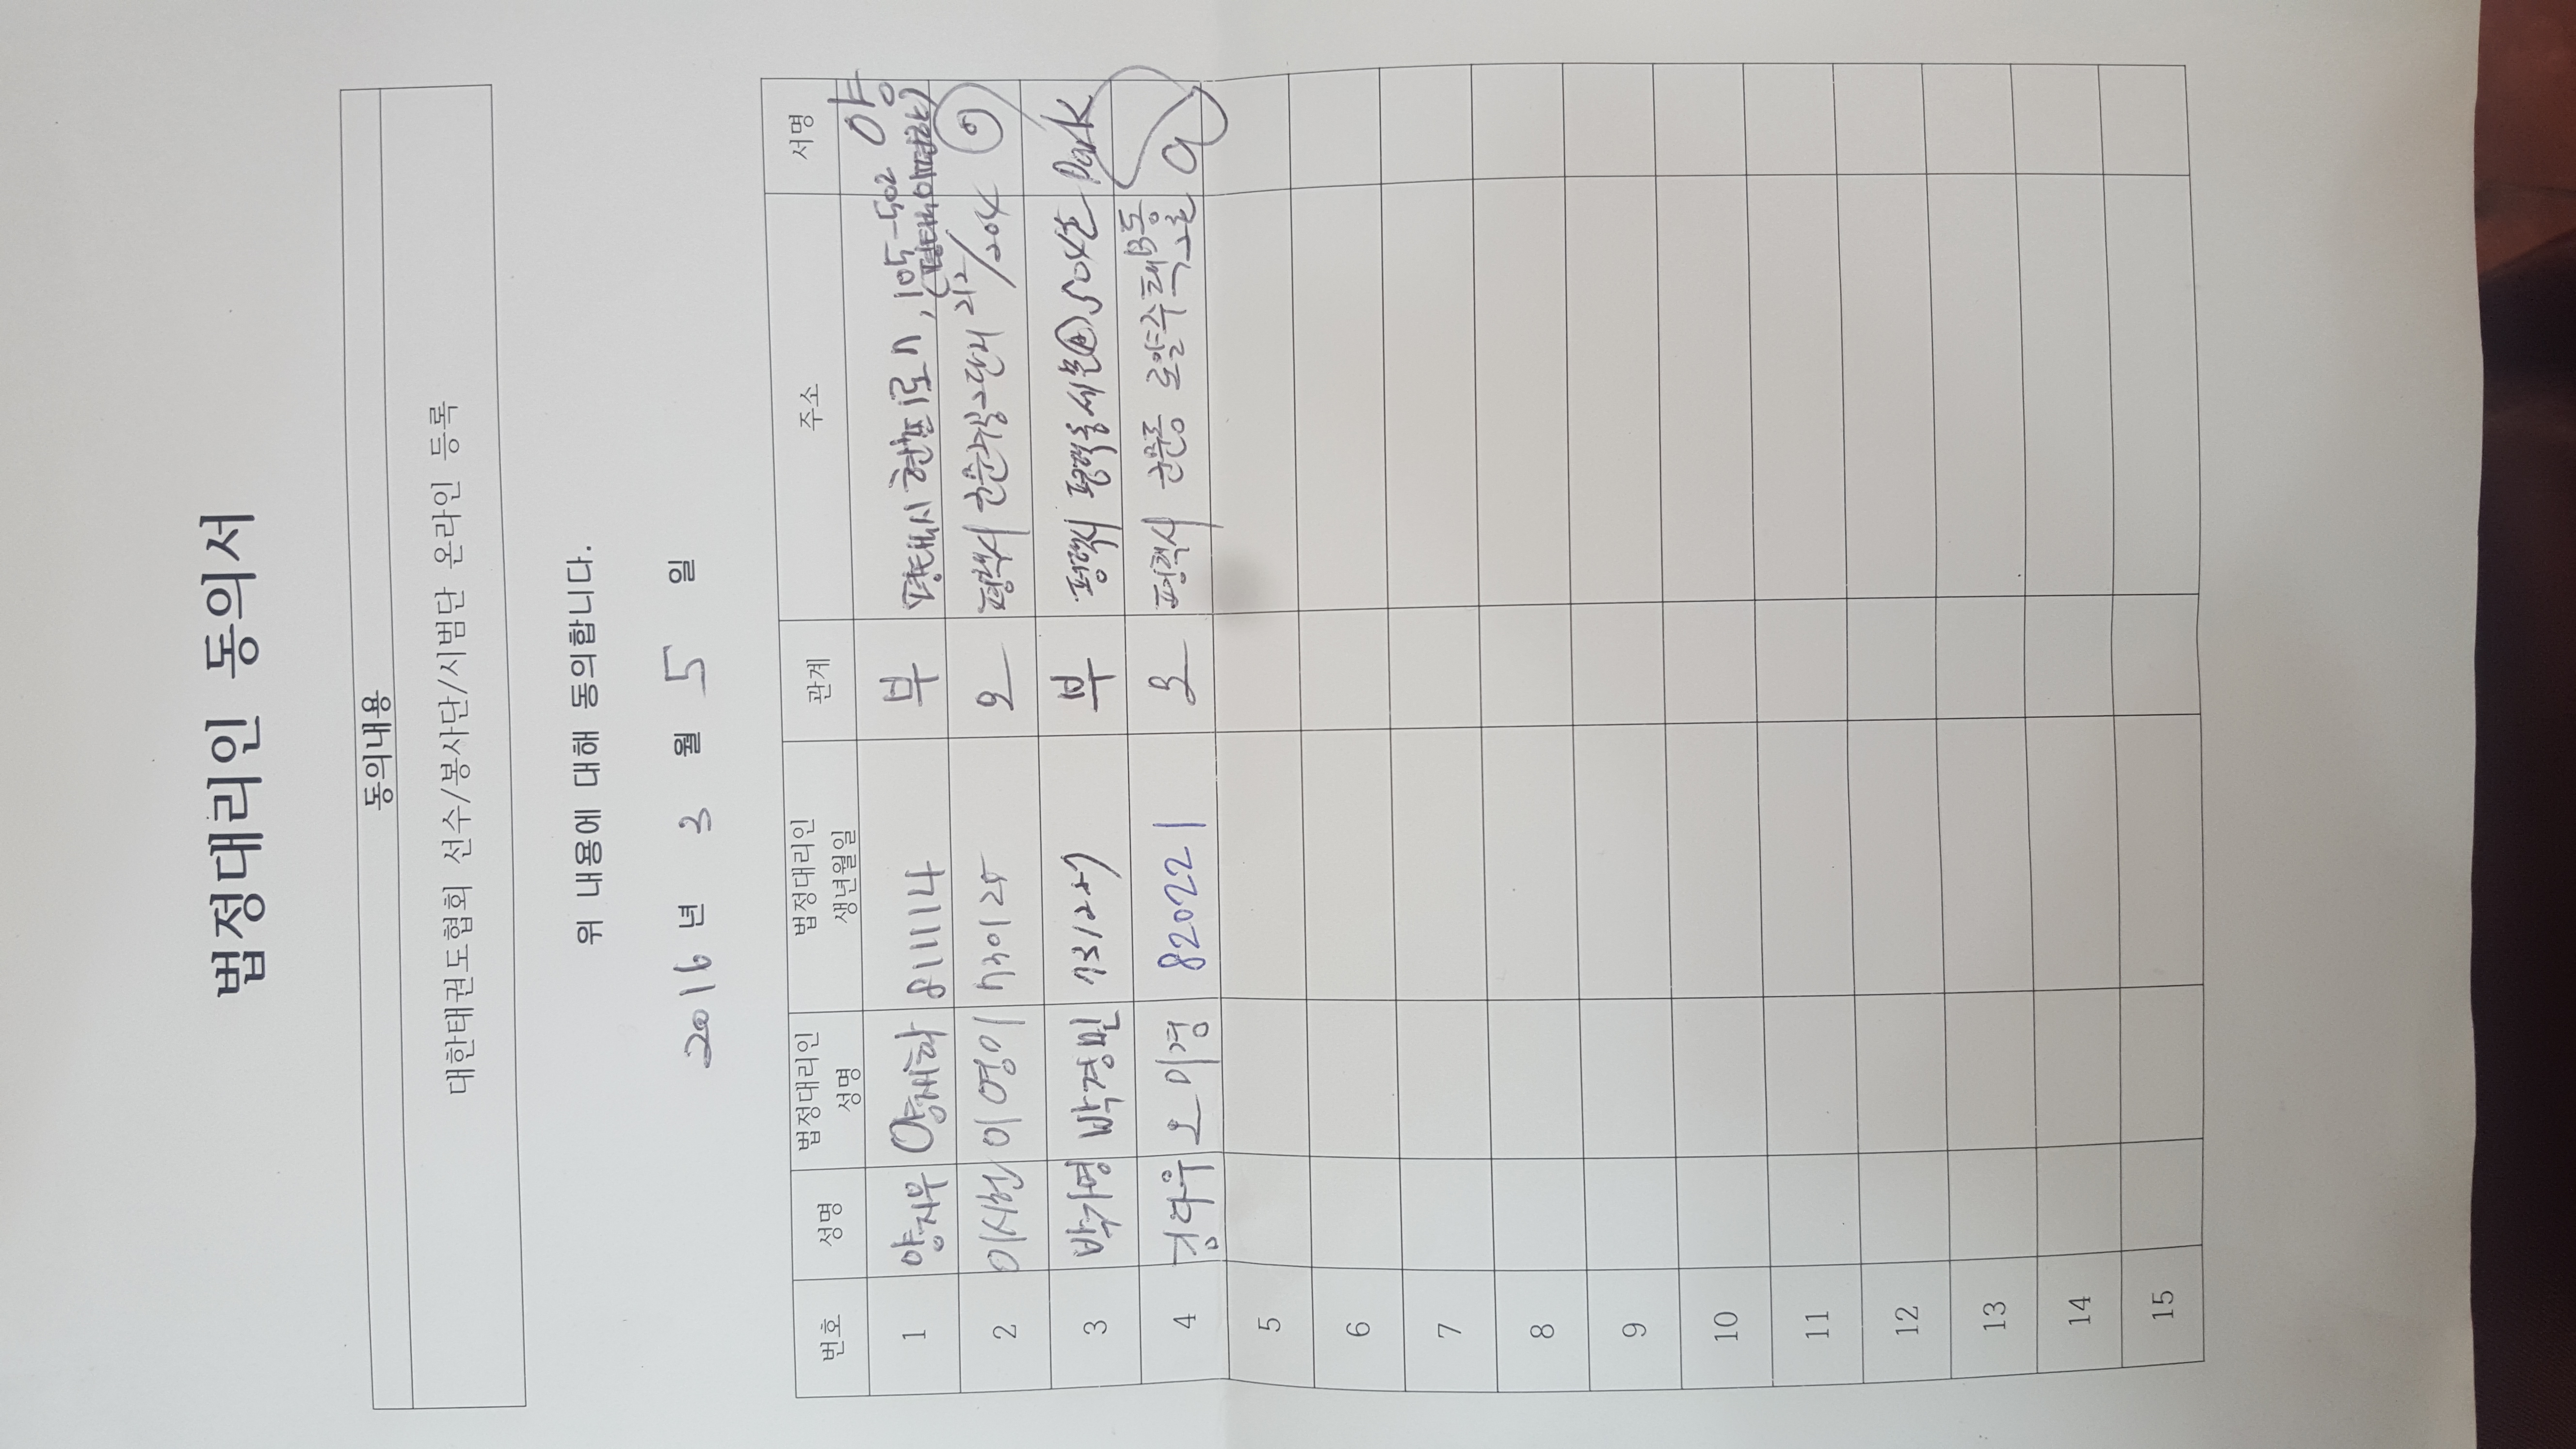 법정대리인 동의서
동의내용
대한태권도협회 선수/봉사단/시범단 온라인 등록
위 내용에 대해 동의합니다.
2016 년 3 월 5 일
번호 성명 법정대리인 성명 법정대리인 생년월일 관계 주소 서명
1 양지우 양재하 811114 부 평택시 현촌1로 105-502 양
2 이시헌 이영이 730125 모 평택시 2단지 212/204
3 박기영 박경민 731227 부 평택시 평택동 504호 Park
4 오미경 820221 모 평택시 군문동 주택 B동
5
6
7
8
9
10
11
12
13
14
15